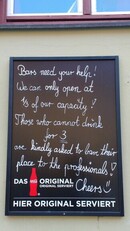 Bars need your help!
We can only open at
⅓ of our capacity!
Those who cannot drink
for 3
are kindly asked to leave their
place to the professionals!
Cheers!
DAS ORIGINAL
ORIGINAL SERVIERT
HIER ORIGINAL SERVIERT